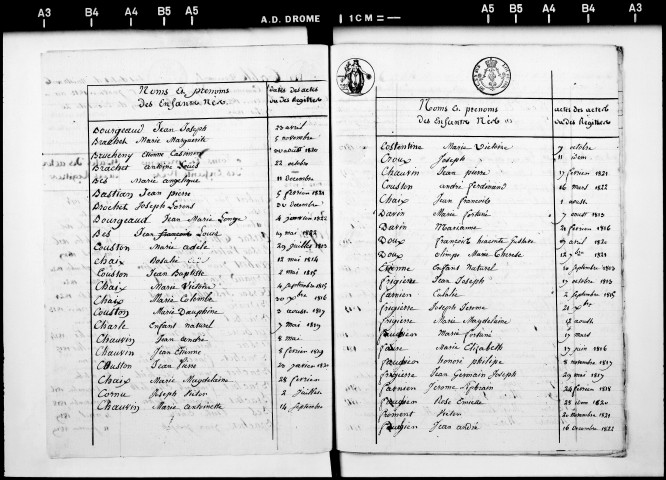 A3 B4 A4 B5 A5 A.D. DROME 1 CM A5 B5 A4 B4 A3
Noms & prenoms
Des Enfans Nés
Dates des actes
ou des Registres
Bourgeaud Jean Joseph 23 avril
Brachet Marie Marguerite 5 novembre
Brucheny Etienne Casimir 30 août 1820
Brachet antoine Louis 22 octobre
Bes Marie angelique 11 Decembre
Bastian Jean pierre 5 fevrier 1821
Brochet Joseph 30 Decembre
Bourgeaud Jean Marie Louise 4 janvier 1822
Bes Jean françois Louis 19 mai 1822
Couston Marie adele 29 juillet 1813
Chaix Rosalie 12 mai 1814
Couston Jean Baptiste 2 mai 1815
Chaix Marie Victoire 4 septembre 1815
Chaix Marie Colombe 30 xbre 1816
Couston Marie Dauphine 3 aoust 1817
Charle Enfant naturel 7 mai 1819
Chauvin Jean andré 8 mai
Chauvin Jean Etienne 8 fevrier 1820
Couston Jean Pierre 20 janvier 1821
Chaix Marie Magdelaine 28 fevrier
Cornu Joseph Victor 2 Juillet
Chauvin Marie antoinette 14 Septembre
Noms & prenoms
des Enfans Nés
Dates des actes
ou des Registres
Costentine Marie Victoire 7 octobre
Croux Joseph 11 idem
Chauvin Jean pierre 17 fevrier 1821
Couston andre ferdinand 16 mars 1822
Chaix Jean françois 1 aoust
Davin Marie fortuné 7 aoust 1813
Davin Marianne 21 fevrier 1816
Doux françois hiacinte 19 avril 1820
Doux Marie Therese 12 xbre 1821
Etienne Enfant Naturel 20 septembre 1803
frigiere Jean Joseph 17 octobre 1813
farnier Eulalie 2 Septembre 1815
frigiere Joseph Jerome 21 xbre
frigiere Marie Magdelaine 12 aoust
Marie fortuné 17 mars
Marie Elizabeth 17 juin 1816
honoré philipe 8 novembre 1817
frigiere Jean Germain Joseph 29 mai 1817
Jerome Ephrain 24 fevrier 1818
Rose Emilie 28 idem 1820
froment Victor 20 novembre 1821
Jean andré 16 Decembre 1822